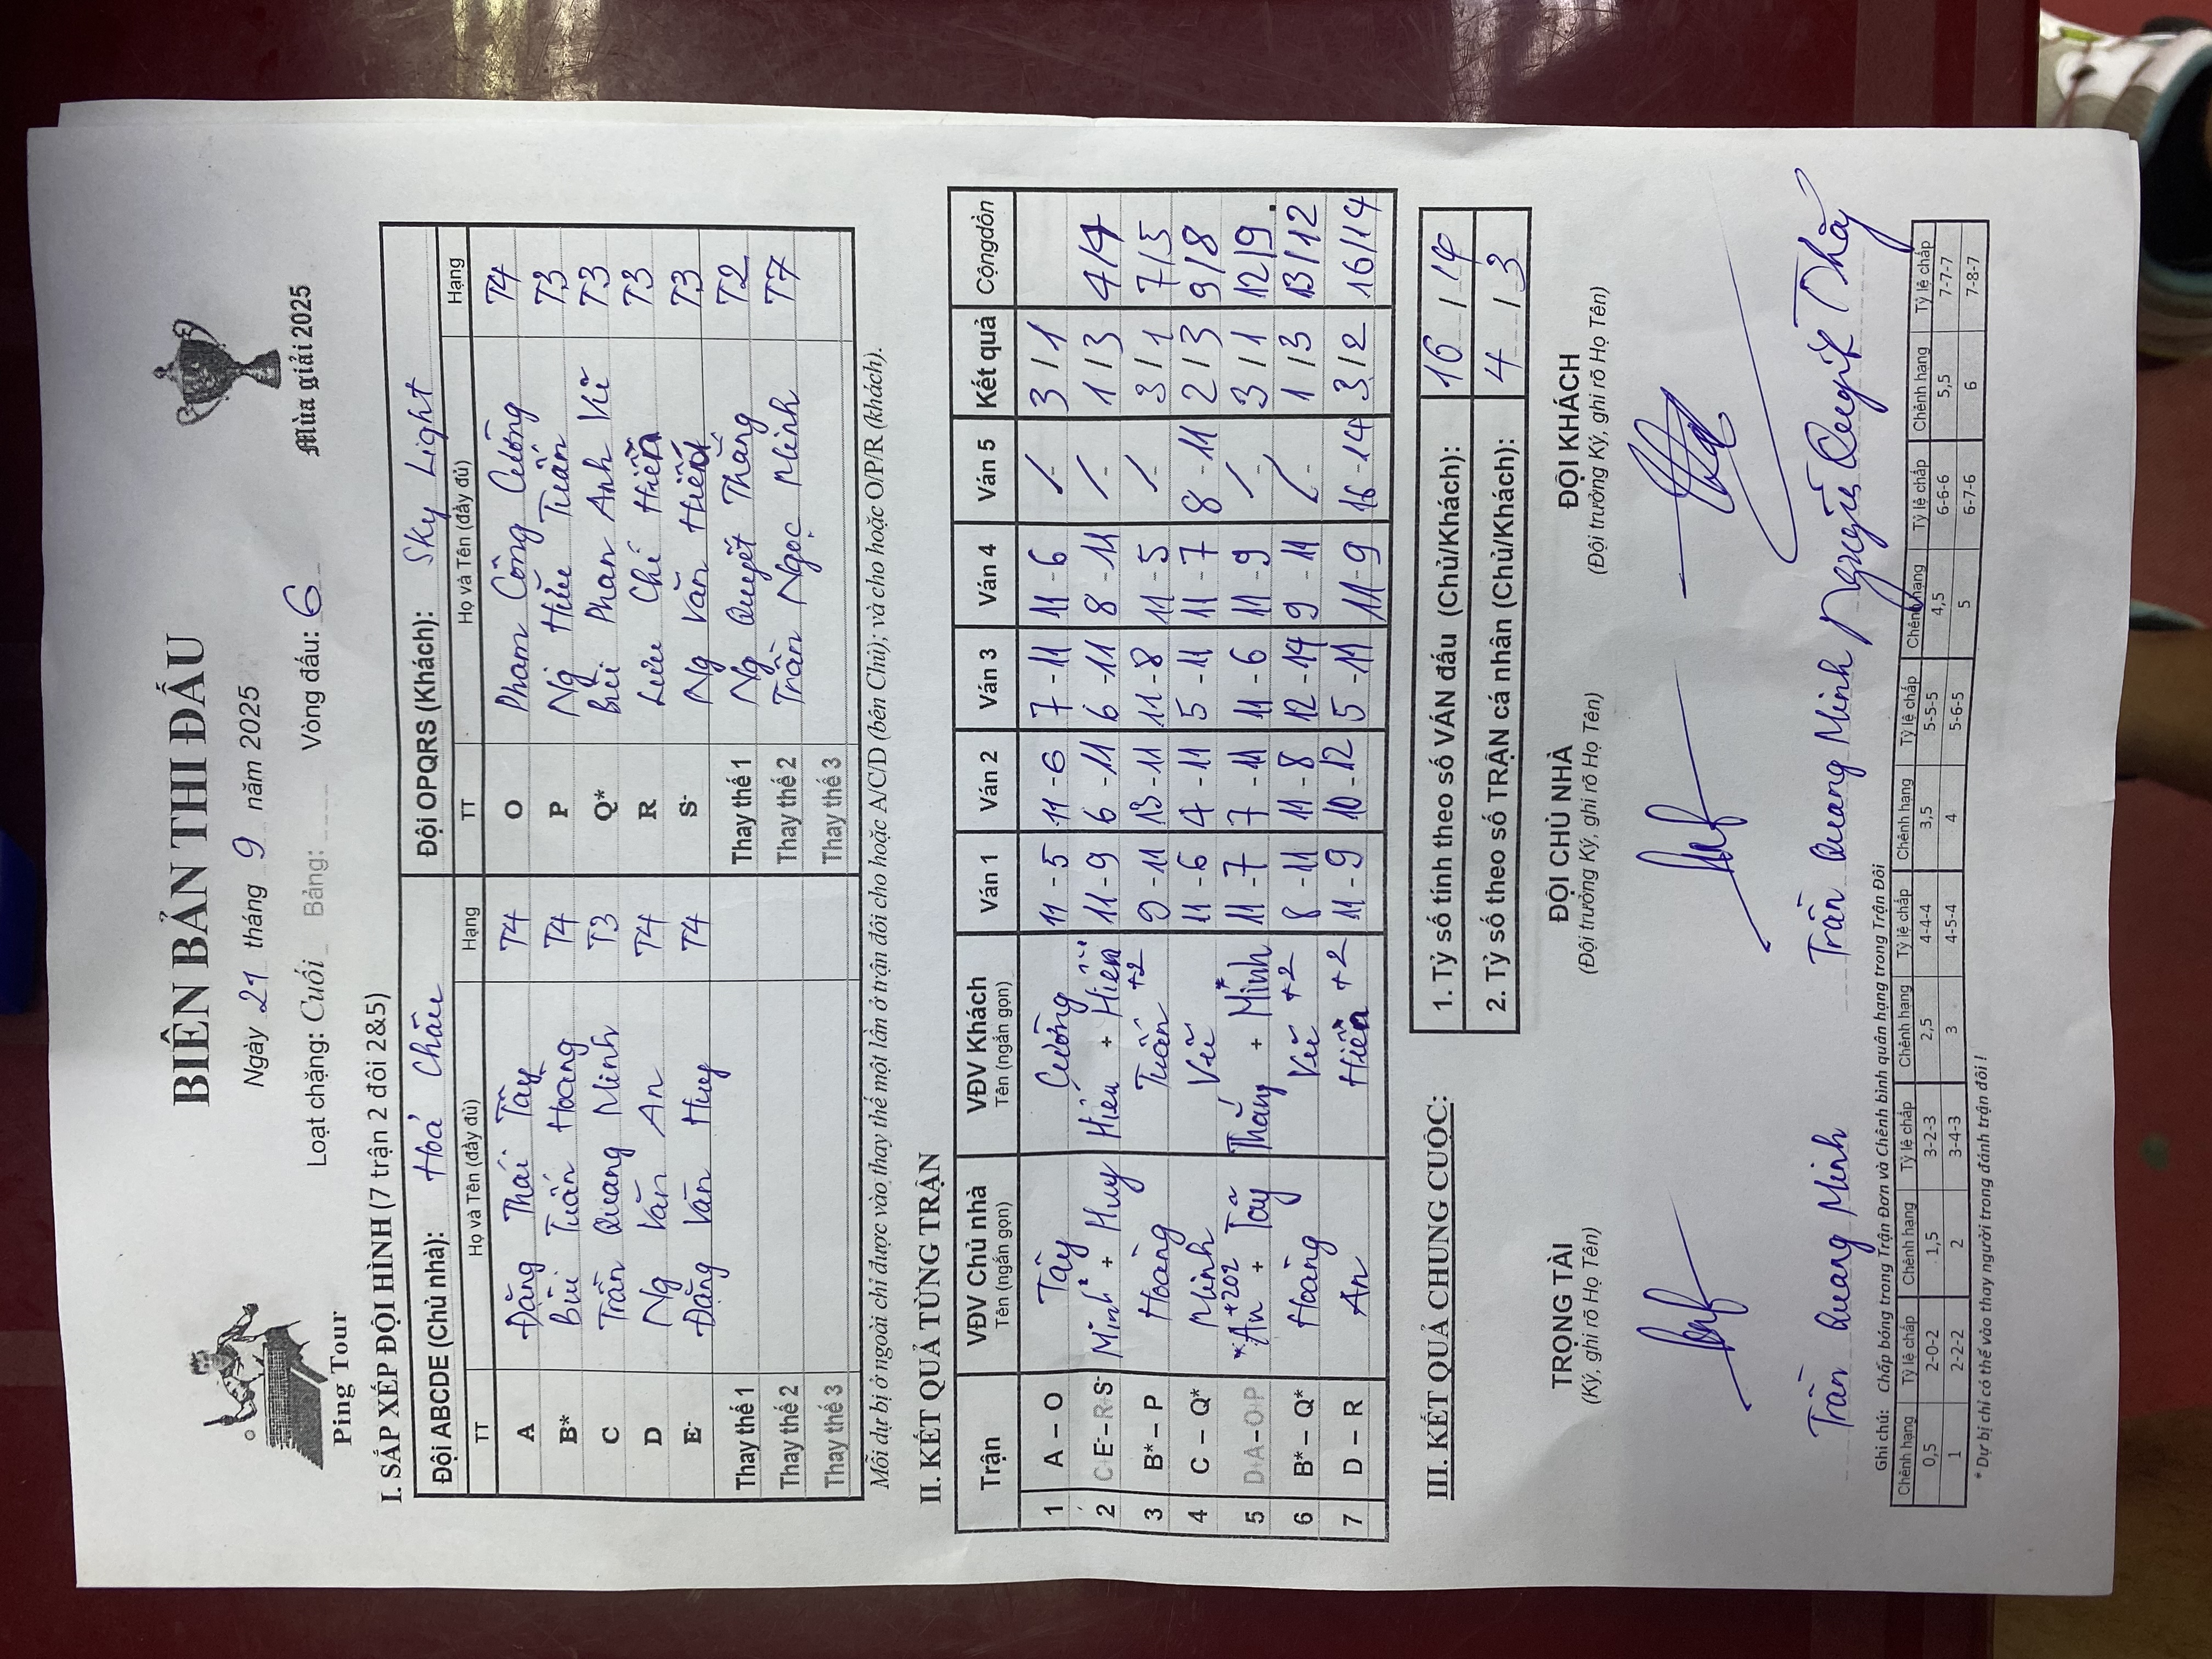 Ping Tour
BIÊN BẢN THI ĐẤU
Ngày 21 tháng 9 năm 2025
Loạt chặng: Cuối Bảng: Vòng đấu: 6
Mùa giải 2025
I. SẮP XẾP ĐỘI HÌNH (7 trận 2 đôi 2&5)
Đội ABCDE (Chủ nhà): Hoá Châu Đội OPQRS (Khách): Sky Light
TT Họ và Tên (đầy đủ) Hạng TT Họ và Tên (đầy đủ) Hạng
A Đặng Thái Tây T4 O Phạm Công Cường T4
B* Bùi Tuấn Hoàng T4 P Ng Hữu Tuấn T3
C Trần Quang Minh T3 Q* Bùi Phan Anh Vũ T3
D Ng Văn An T4 R Lưu Chí Hiền T3
E- Đặng Văn Huy T4 S- Ng Văn Hiếu T3
Thay thế 1 Thay thế 1 Ng Quyết Thắng T2
Thay thế 2 Thay thế 2 Trần Ngọc Minh T7
Thay thế 3 Thay thế 3
Mỗi dự bị ở ngoài chỉ được vào thay thế một lần ở trận đôi cho hoặc A/C/D (bên Chủ); và cho hoặc O/P/R (khách).
II. KẾT QUẢ TỪNG TRẬN
Trận VĐV Chủ nhà Tên (ngắn gọn) VĐV Khách Tên (ngắn gọn) Ván 1 Ván 2 Ván 3 Ván 4 Ván 5 Kết quả Cộng dồn
1 A – O Tây Cường 11 - 5 11 - 6 7 - 11 11 - 6 / 3 / 1
2 C E- – R S- Minh* + Huy Hiếu + Hiền 11 - 9 6 - 11 6 - 11 8 - 11 / 1 / 3 4/4
3 B* – P Hoàng Tuấn +2 9 - 11 13 - 11 11 - 8 11 - 5 / 3 / 1 7/5
4 C – Q* Minh Vũ 11 - 6 4 - 11 5 - 11 11 - 7 8 - 11 2 / 3 9/8
5 D A – O P *An +202 + Tây Thắng + Minh* 11 - 7 7 - 11 11 - 6 11 - 9 / 3 / 1 12/9
6 B* – Q* Hoàng Vũ +2 8 - 11 11 - 8 12 - 14 9 - 11 / 1 / 3 13/12
7 D – R An Hiền +2 11 - 9 10 - 12 5 - 11 11 - 9 16 - 14 3 / 2 16/14
III. KẾT QUẢ CHUNG CUỘC:
1. Tỷ số tính theo số VÁN đấu (Chủ/Khách): 16 / 14
2. Tỷ số theo số TRẬN cá nhân (Chủ/Khách): 4 / 3
TRỌNG TÀI ĐỘI CHỦ NHÀ ĐỘI KHÁCH
(Ký, ghi rõ Họ Tên) (Đội trưởng Ký, ghi rõ Họ Tên) (Đội trưởng Ký, ghi rõ Họ Tên)
Trần Quang Minh Trần Quang Minh Nguyễn Quyết Thắng
Ghi chú: Chấp bóng trong Trận Đơn và Chênh bình quân hạng trong Trận Đôi
Chênh hạng Tỷ lệ chấp Chênh hạng Tỷ lệ chấp Chênh hạng Tỷ lệ chấp Chênh hạng Tỷ lệ chấp Chênh hạng Tỷ lệ chấp Chênh hạng Tỷ lệ chấp
0,5 2-0-2 1,5 3-2-3 2,5 4-4-4 3,5 5-5-5 4,5 6-6-6 5,5 7-7-7
1 2-2-2 2 3-4-3 3 4-5-4 4 5-6-5 5 6-7-6 6 7-8-7
* Dự bị chỉ có thể vào thay người trong đánh trận đôi !